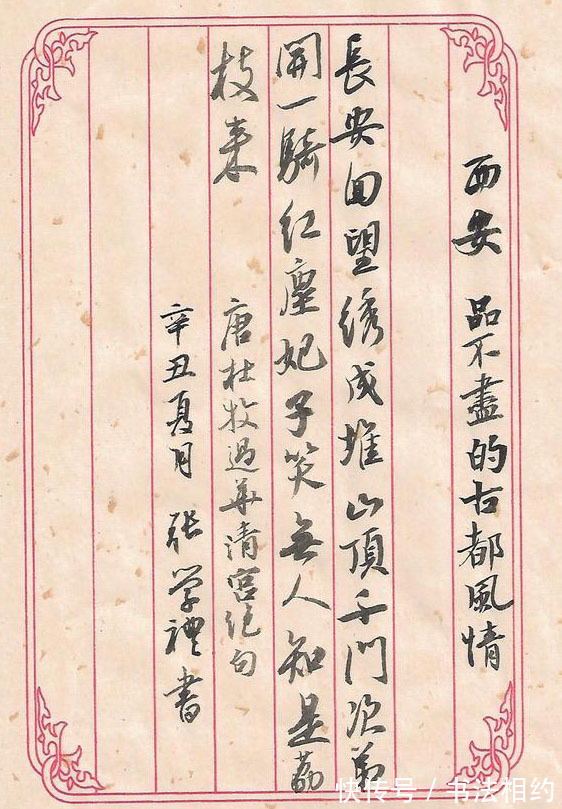 西安 品不盡的古都風情
長安回望绣成堆山頂千門次弟
開一騎红塵妃子笑無人知是荔
枝来
唐杜牧過華清宫绝句
辛丑夏月 张学禮書
快传号 / 书法相约